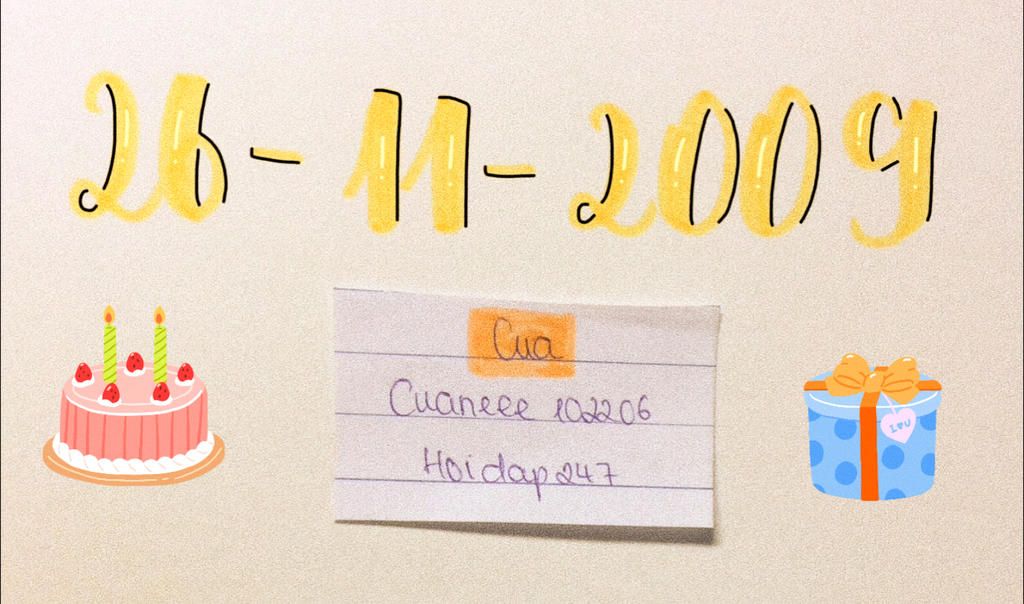 26-11-2009
Cua
Cuaneee 102206
Hoidap247
I♥U